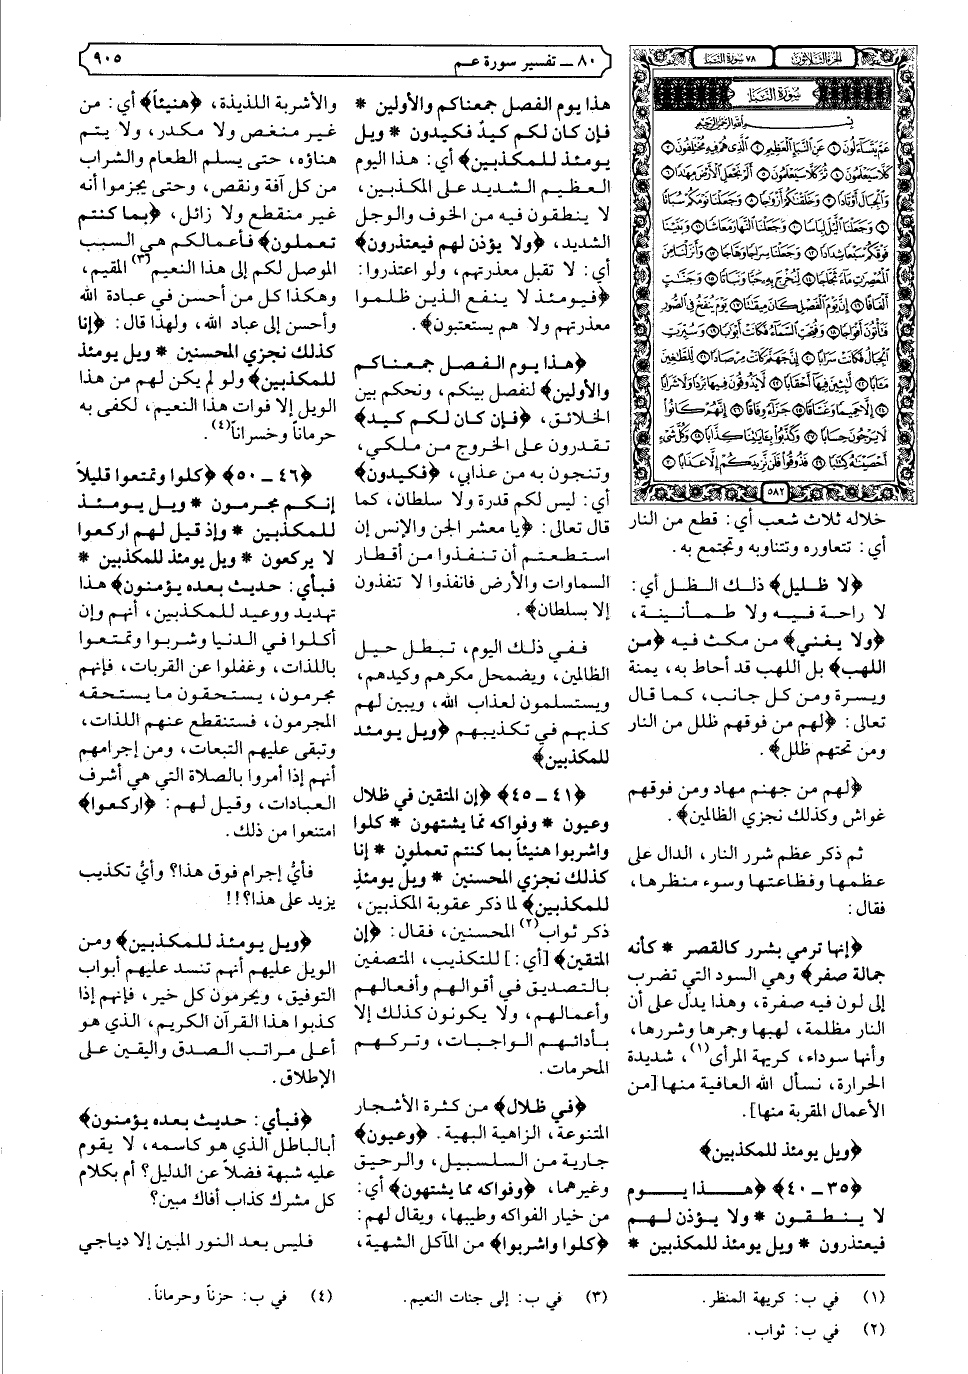 ٨٠ ــ تفسير سورة عـم
٩٠٥
الجزء الثلاثون
٧٨ سورة النبإ
سورة النبإ
بسم الله الرحمن الرحيم
عَمَّ يَتَسَآءَلُونَ ١ عَنِ النَّبَإِ الْعَظِيمِ ٢ الَّذِي هُمْ فِيهِ مُخْتَلِفُونَ ٣
كَلَّا سَيَعْلَمُونَ ٤ ثُمَّ كَلَّا سَيَعْلَمُونَ ٥ أَلَمْ نَجْعَلِ الْأَرْضَ مِهَادًا ٦
وَالْجِبَالَ أَوْتَادًا ٧ وَخَلَقْنَاكُمْ أَزْوَاجًا ٨ وَجَعَلْنَا نَوْمَكُمْ سُبَاتًا
٩ وَجَعَلْنَا الَّيْلَ لِبَاسًا ١٠ وَجَعَلْنَا النَّهَارَ مَعَاشًا ١١ وَبَنَيْنَا
فَوْقَكُمْ سَبْعًا شِدَادًا ١٢ وَجَعَلْنَا سِرَاجًا وَهَّاجًا ١٣ وَأَنْزَلْنَا مِنَ
الْمُعْصِرَاتِ مَآءً ثَجَّاجًا ١٤ لِنُخْرِجَ بِهِ حَبًّا وَنَبَاتًا ١٥ وَجَنَّاتٍ
أَلْفَافًا ١٦ إِنَّ يَوْمَ الْفَصْلِ كَانَ مِيقَاتًا ١٧ يَوْمَ يُنْفَخُ فِي الصُّورِ
فَتَأْتُونَ أَفْوَاجًا ١٨ وَفُتِحَتِ السَّمَآءُ فَكَانَتْ أَبْوَابًا ١٩ وَسُيِّرَتِ
الْجِبَالُ فَكَانَتْ سَرَابًا ٢٠ إِنَّ جَهَنَّمَ كَانَتْ مِرْصَادًا ٢١ لِلطَّاغِينَ
مَآبًا ٢٢ لَابِثِينَ فِيهَآ أَحْقَابًا ٢٣ لَا يَذُوقُونَ فِيهَا بَرْدًا وَلَا شَرَابًا
٢٤ إِلَّا حَمِيمًا وَغَسَّاقًا ٢٥ جَزَآءً وِفَاقًا ٢٦ إِنَّهُمْ كَانُوا
لَا يَرْجُونَ حِسَابًا ٢٧ وَكَذَّبُوا بِآيَاتِنَا كِذَّابًا ٢٨ وَكُلَّ شَيْءٍ
أَحْصَيْنَاهُ كِتَابًا ٢٩ فَذُوقُوا فَلَنْ نَزِيدَكُمْ إِلَّا عَذَابًا ٣٠
٥٨٢
خلاله ثلاث شعب أي: قطع من النار
أي: تتعاوره وتتناوبه وتجتمع به.
﴿لا ظليل﴾ ذلك الظل أي:
لا راحة فيه ولا طمأنينة،
﴿ولا يغني﴾ من مكث فيه ﴿من
اللهب﴾ بل اللهب قد أحاط به، يمنة
ويسرة ومن كل جانب، كما قال
تعالى: ﴿لهم من فوقهم ظلل من النار
ومن تحتهم ظلل﴾.
﴿لهم من جهنم مهاد ومن فوقهم
غواش وكذلك نجزي الظالمين﴾.
ثم ذكر عظم شرر النار، الدال على
عظمها وفظاعتها وسوء منظرها،
فقال:
﴿إنها ترمي بشرر كالقصر * كأنه
جمالة صفر﴾ وهي السود التي تضرب
إلى لون فيه صفرة، وهذا يدل على أن
النار مظلمة، لهبها وجمرها وشررها،
وأنها سوداء، كريهة المرأى(١)، شديدة
الحرارة، نسأل الله العافية منها [من
الأعمال المقربة منها].
﴿ويل يومئذ للمكذبين﴾
﴿٣٥ ــ ٤٠﴾ ﴿هـذا يـوم
لا ينطقون * ولا يؤذن لهم
فيعتذرون * ويل يومئذ للمكذبين *
هذا يوم الفصل جمعناكم والأولين *
فإن كان لكم كيدٌ فكيدون * ويل
يومئذ للمكذبين﴾ أي: هذا اليوم
العظيم الشديد على المكذبين،
لا ينطقون فيه من الخوف والوجل
الشديد، ﴿ولا يؤذن لهم فيعتذرون﴾
أي: لا تقبل معذرتهم، ولو اعتذروا:
﴿فيومئذ لا ينفع الذين ظلموا
معذرتهم ولا هم يستعتبون﴾.
﴿هذا يوم الفصل جمعناكم
والأولين﴾ لنفصل بينكم، ونحكم بين
الخلائق، ﴿فإن كان لكم كيد﴾
تقدرون على الخروج من ملكي،
وتنجون به من عذابي، ﴿فكيدون﴾
أي: ليس لكم قدرة ولا سلطان، كما
قال تعالى: ﴿يا معشر الجن والإنس إن
استطعتم أن تنفذوا من أقطار
السماوات والأرض فانفذوا لا تنفذون
إلا بسلطان﴾.
ففي ذلك اليوم، تبطل حيل
الظالمين، ويضمحل مكرهم وكيدهم،
ويستسلمون لعذاب الله، ويبين لهم
كذبهم في تكذيبهم ﴿ويل يومئذ
للمكذبين﴾
﴿٤١ ــ ٤٥﴾ ﴿إن المتقين في ظلال
وعيون * وفواكه مما يشتهون * كلوا
واشربوا هنيئاً بما كنتم تعملون * إنا
كذلك نجزي المحسنين * ويلٌ يومئذٍ
للمكذبين﴾ لما ذكر عقوبة المكذبين،
ذكر ثواب(٢) المحسنين، فقال: ﴿إن
المتقين﴾ [أي:] للتكذيب، المتصفين
بالتصديق في أقوالهم وأفعالهم
وأعمالهم، ولا يكونون كذلك إلا
بأدائهم الواجبات، وتركهم
المحرمات.
﴿في ظلال﴾ من كثرة الأشجار
المتنوعة، الزاهية البهية. ﴿وعيون﴾
جارية من السلسبيل، والرحيق
وغيرهما، ﴿وفواكه مما يشتهون﴾ أي:
من خيار الفواكه وطيبها، ويقال لهم:
﴿كلوا واشربوا﴾ من المآكل الشهية،
والأشربة اللذيذة، ﴿هنيئاً﴾ أي: من
غير منغص ولا مكدر، ولا يتم
هناؤه، حتى يسلم الطعام والشراب
من كل آفة ونقص، وحتى يجزموا أنه
غير منقطع ولا زائل، ﴿بما كنتم
تعملون﴾ فأعمالكم هي السبب
الموصل لكم إلى هذا النعيم(٣) المقيم،
وهكذا كل من أحسن في عبادة الله
وأحسن إلى عباد الله، ولهذا قال: ﴿إنا
كذلك نجزي المحسنين * ويل يومئذ
للمكذبين﴾ ولو لم يكن لهم من هذا
الويل إلا فوات هذا النعيم، لكفى به
حرماناً وخسراناً(٤).
﴿٤٦ ــ ٥٠﴾ ﴿كلوا وتمتعوا قليلاً
إنكم مجرمون * ويل يومئذ
للمكذبين * وإذ قيل لهم اركعوا
لا يركعون * ويل يومئذ للمكذبين *
فبأي: حديث بعده يؤمنون﴾ هذا
تهديد ووعيد للمكذبين، أنهم وإن
أكلوا في الدنيا وشربوا وتمتعوا
باللذات، وغفلوا عن القربات، فإنهم
مجرمون، يستحقون ما يستحقه
المجرمون، فستنقطع عنهم اللذات،
وتبقى عليهم التبعات، ومن إجرامهم
أنهم إذا أمروا بالصلاة التي هي أشرف
العبادات، وقيل لهم: ﴿اركعوا﴾
امتنعوا من ذلك.
فأيُّ إجرام فوق هذا؟ وأيُّ تكذيب
يزيد على هذا؟!!
﴿ويل يومئذ للمكذبين﴾ ومن
الويل عليهم أنهم تنسد عليهم أبواب
التوفيق، ويحرمون كل خير، فإنهم إذا
كذبوا هذا القرآن الكريم، الذي هو
أعلى مراتب الصدق واليقين على
الإطلاق.
﴿فبأي: حديث بعده يؤمنون﴾
أبالباطل الذي هو كاسمه، لا يقوم
عليه شبهة فضلاً عن الدليل؟ أم بكلام
كل مشرك كذاب أفاك مبين؟
فليس بعد النور المبين إلا دياجي
(١) في ب: كريهة المنظر.
(٢) في ب: ثواب.
(٣) في ب: إلى جنات النعيم.
(٤) في ب: حزناً وحرماناً.